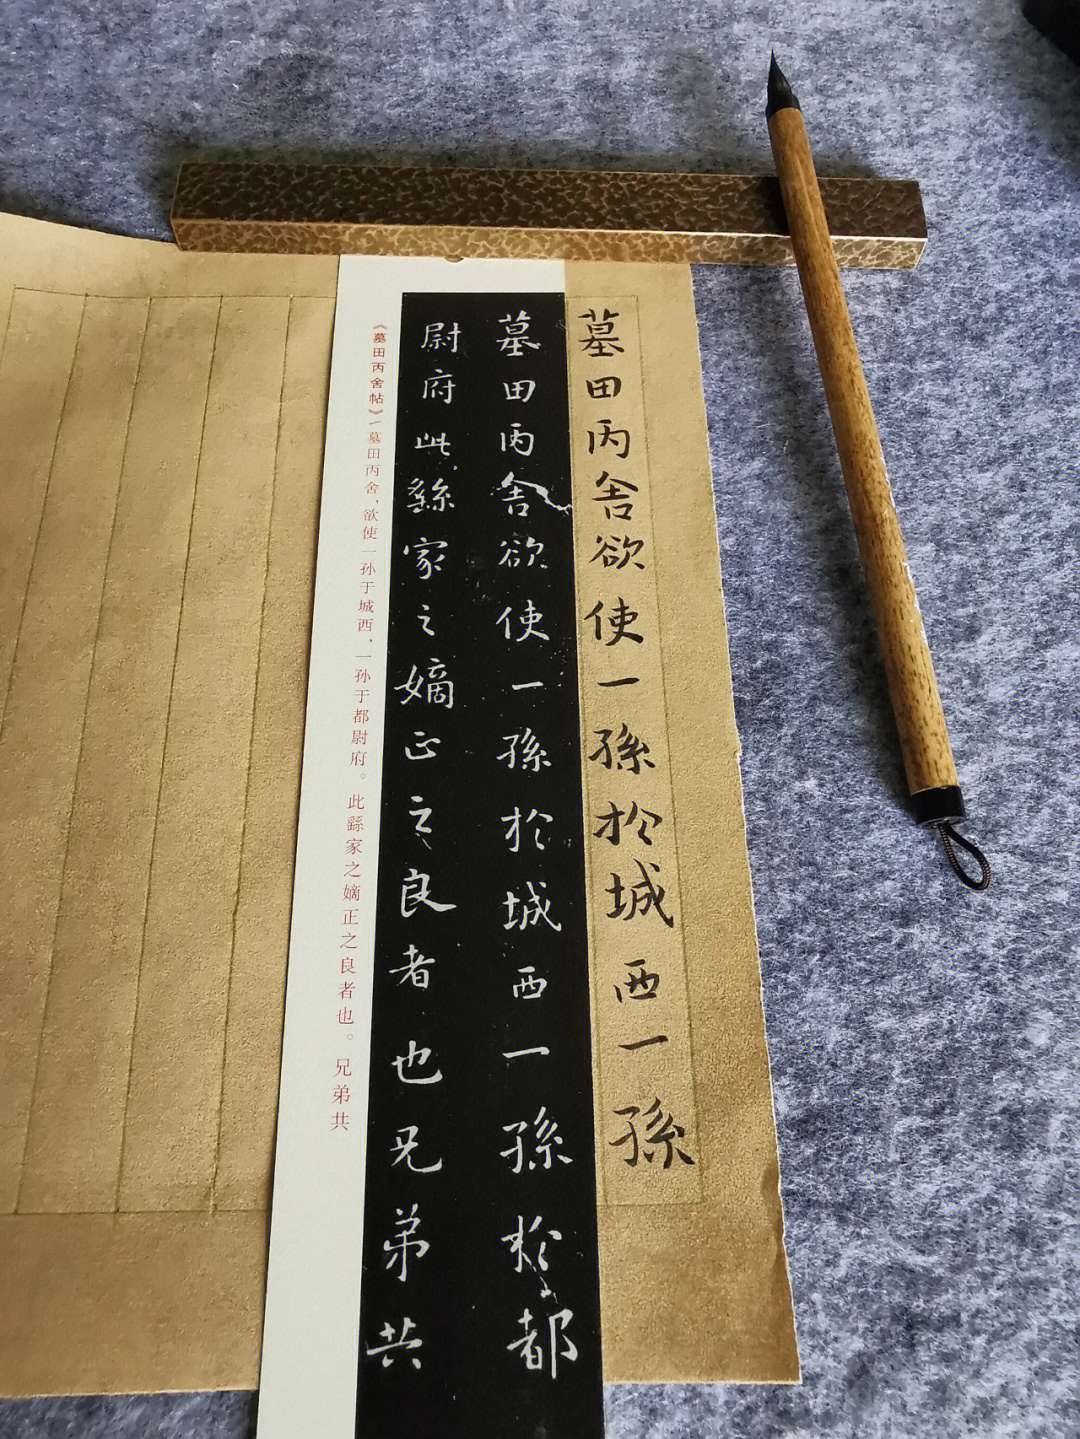 墓田丙舍欲使一孫於城西一孫
墓田丙舍欲使一孫於城西一孫於都
尉府此繇家之嫡正之良者也兄弟共
《墓田丙舍帖》—墓田丙舍，欲使一孙于城西，一孙于都尉府。此繇家之嫡正之良者也。兄弟共